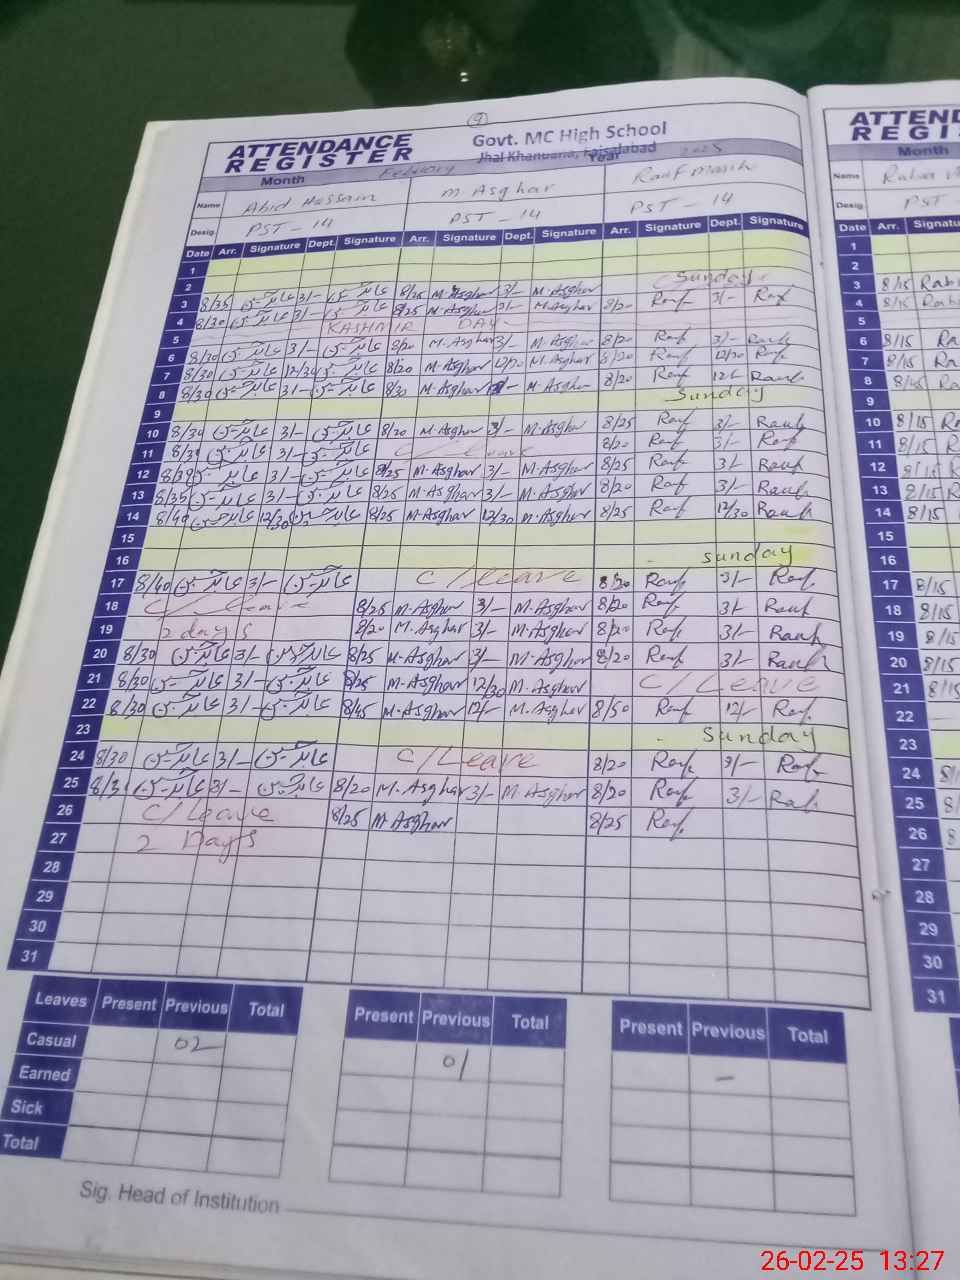 9
ATTENDANCE REGISTER
Govt. MC High School
Jhal Khanuana, Faisalabad
Month February Year 2025
Name Abid Hussain M Asghar Rauf Masih
Desig. PST - 14 PST - 14 PST - 14
Date Arr. Signature Dept. Signature Arr. Signature Dept. Signature Arr. Signature Dept. Signature
1
2 Sunday
3 8/35 3/- 8/25 M. Asghar 3/- M. Asghar 8/20 Rauf 3/- Rauf
4 8/30 3/- 8/25 M. Asghar 3/- M. Asghar
5 KASHMIR DAY
6 8/30 3/- 8/20 M. Asghar 3/- M. Asghar 8/20 Rauf 3/- Rauf
7 8/30 12/30 8/20 M. Asghar 12/30 M. Asghar 8/20 Rauf 12/30 Rauf
8 8/30 3/- 8/30 M. Asghar M. Asghar 8/20 Rauf 12/- Rauf
9 Sunday
10 8/30 3/- 8/20 M. Asghar 3/- M. Asghar 8/25 Rauf 3/- Rauf
11 3/- C/Leave 8/20 Rauf 3/- Rauf
12 3/- 8/25 M. Asghar 3/- M. Asghar 8/25 Rauf 3/- Rauf
13 8/35 3/- 8/25 M. Asghar 3/- M. Asghar 8/20 Rauf 3/- Rauf
14 8/40 12/30 8/25 M. Asghar 12/30 M. Asghar 8/25 Rauf 12/30 Rauf
15
16 Sunday
17 8/40 عابد حسین 3/- عابد حسین C/Leave 8/20 Rauf 3/- Rauf
18 C/Leave 8/25 M. Asghar 3/- M. Asghar 8/20 Rauf 3/- Rauf
19 2 days 8/20 M. Asghar 3/- M. Asghar 8/20 Rauf 3/- Rauf
20 8/30 عابد حسین 3/- عابد حسین 8/25 M. Asghar 3/- M. Asghar 8/20 Rauf 3/- Rauf
21 8/30 عابد حسین 3/- عابد حسین 8/25 M. Asghar 12/30 M. Asghar C/Leave
22 8/30 عابد حسین 3/- عابد حسین 8/45 M. Asghar 12/- M. Asghar 8/50 Rauf 12/- Rauf
23 Sunday
24 8/30 عابد حسین 3/- عابد حسین C/Leave 8/20 Rauf 3/- Rauf
25 عابد حسین 3/- عابد حسین 8/20 M. Asghar 3/- M. Asghar 8/20 Rauf 3/- Rauf
26 C/Leave 8/25 M Asghar 8/25 Rauf
27 2 Days
28
29
30
31
Leaves Present Previous Total Present Previous Total Present Previous Total
Casual 02 01 -
Earned
Sick
Total
Sig. Head of Institution
ATTEND
REGI
Month
Name
Desig. PST
Date Arr. Signatu
1
2
3 8/15 Rab
4 8/15
5
6 8/15 Ra
7 8/15 Ra
8 Ra
9
10 8/15
11 8/15 R
12 8/15
13 8/15
14 8/15
15
16
17 8/15
18 8/15
19 8/15
20 8/15
21 8/15
22
23
24
25
26
27
28
29
30
31
26-02-25 13:27